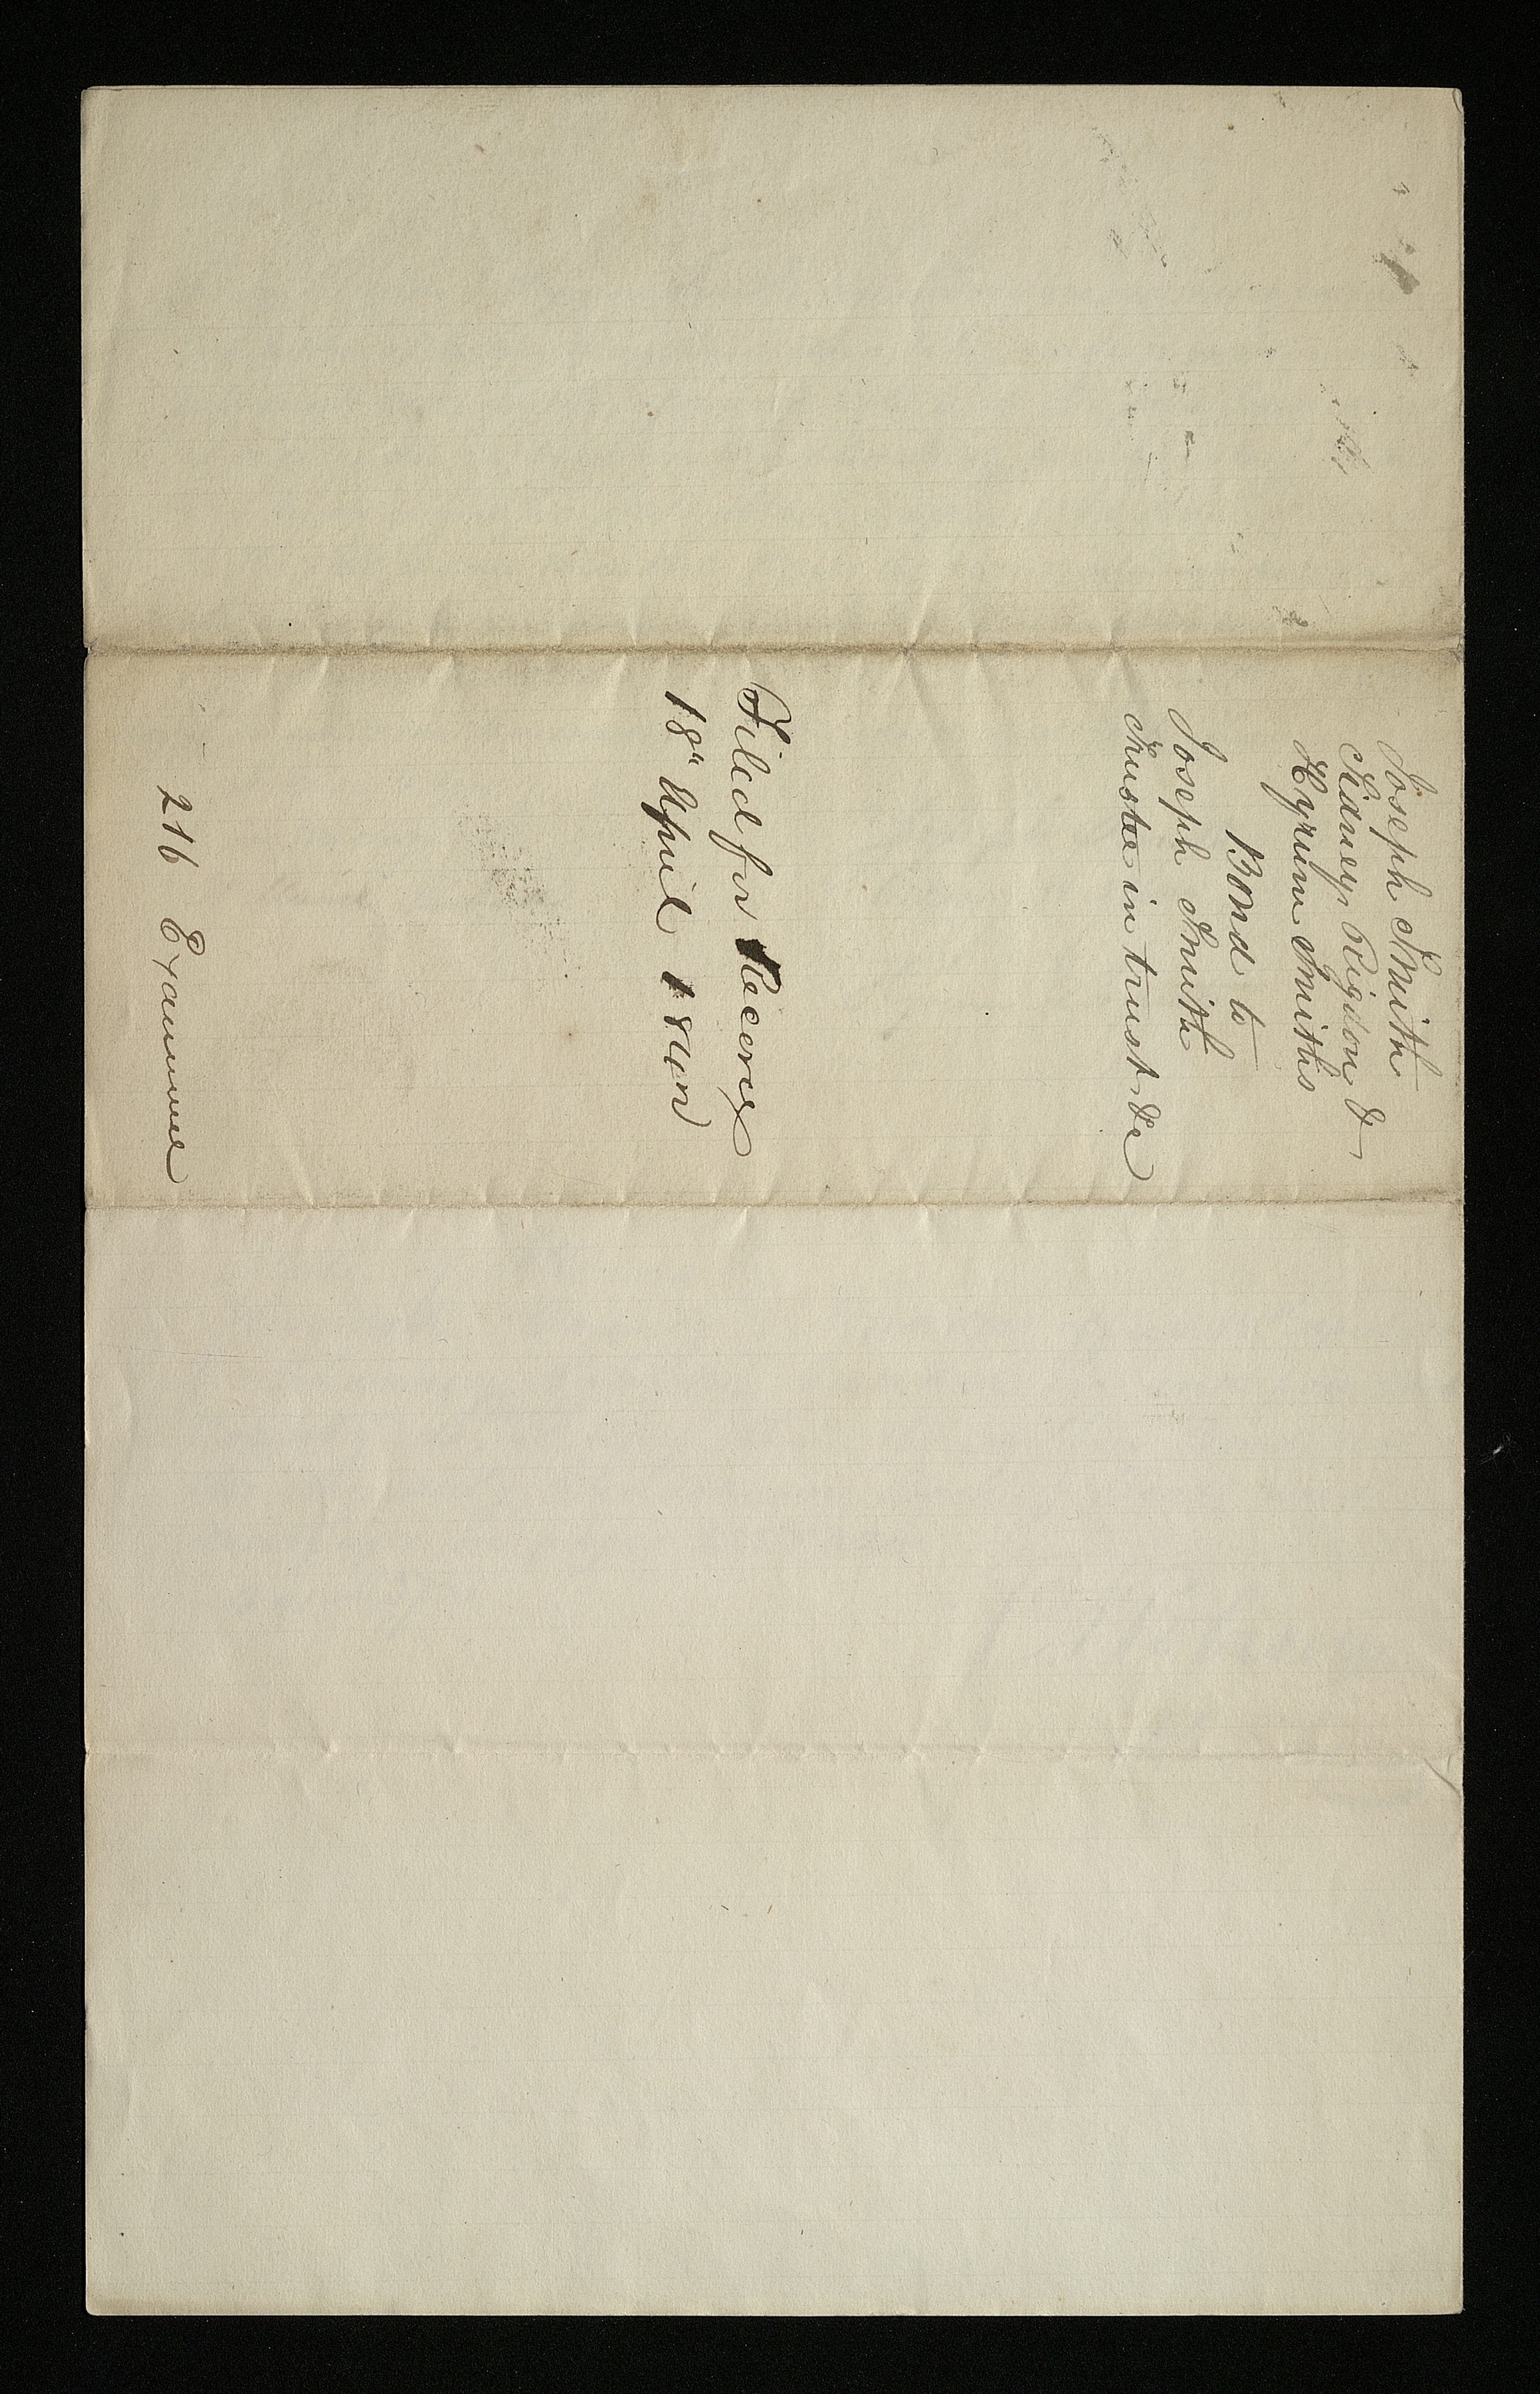 Joseph Smith
Sidney Rigdon &
Hyrum Smiths
Bond to
Joseph Smith
Trustee in trust &c
Filed for Record
18" April 1842
216 Examined